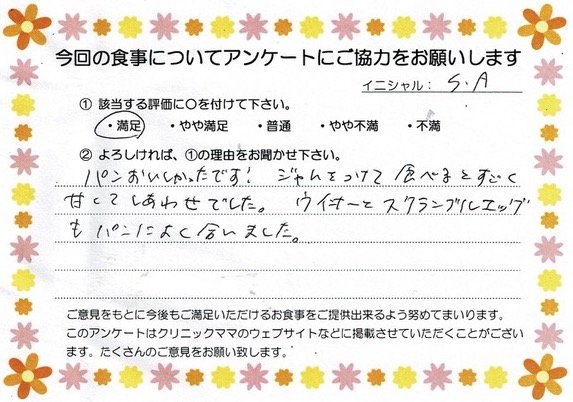 今回の食事についてアンケートにご協力をお願いします
イニシャル： S.A
① 該当する評価に○を付けて下さい。
・満足 ・やや満足 ・普通 ・やや不満 ・不満
② よろしければ、①の理由をお聞かせ下さい。
パンおいしかったです! ジャムをつけて食べるとすごく
甘くてしあわせでした。 ウイナーとスクランブルエッグ
もパンによく合いました。
ご意見をもとに今後もご満足いただけるお食事をご提供出来るよう努めてまいります。
このアンケートはクリニックママのウェブサイトなどに掲載させていただくことがござい
ます。たくさんのご意見をお願い致します。